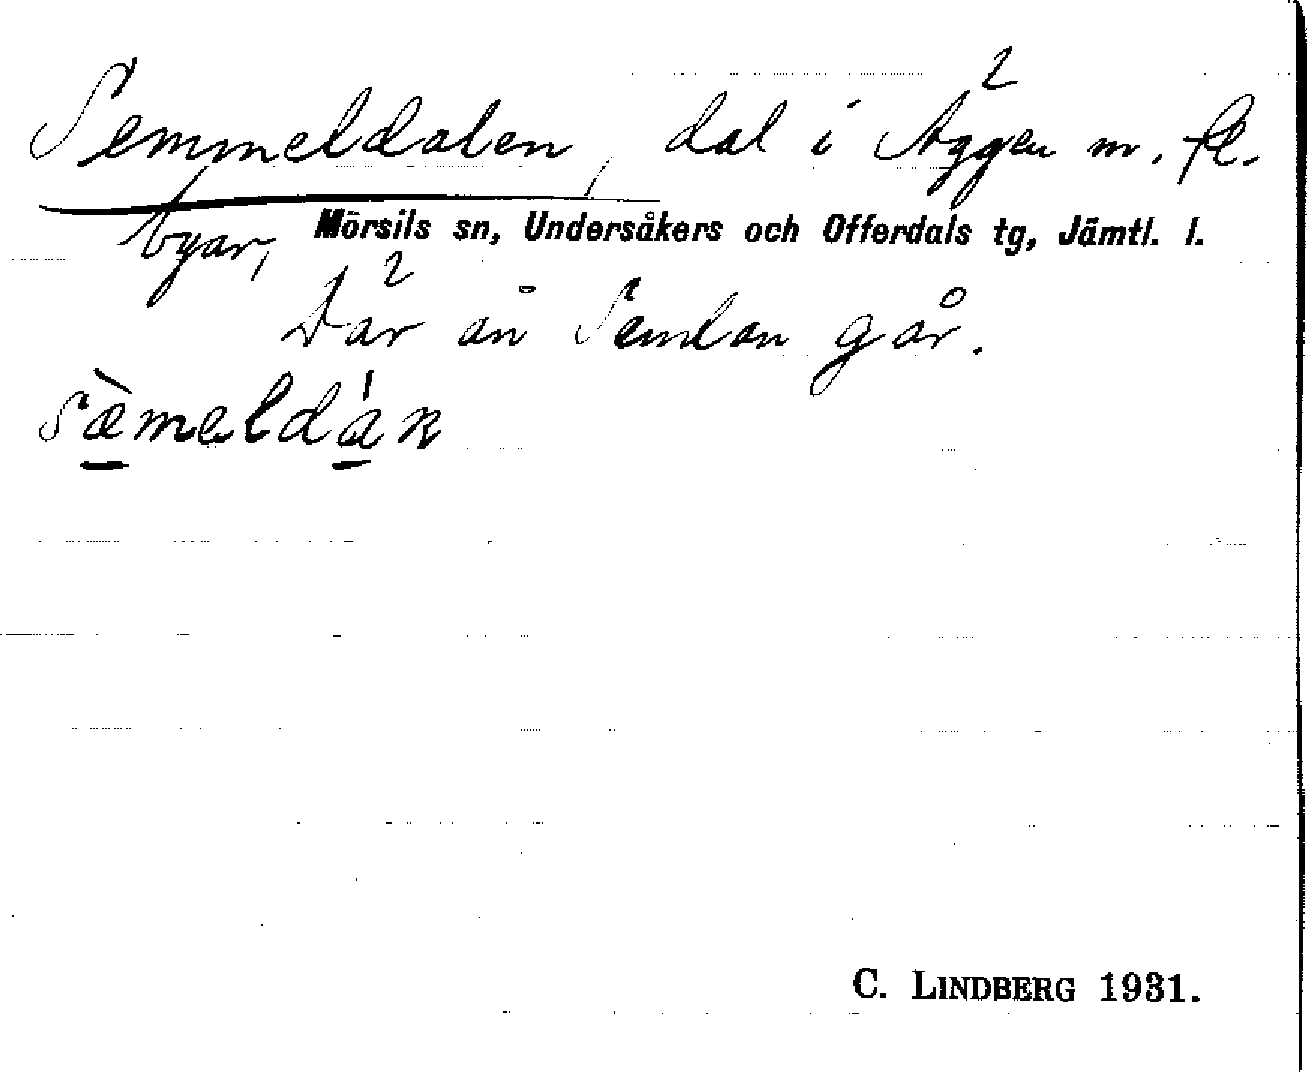 Semmeldalen, dal i Äggen m. fl.
byar, Mörsils sn, Undersåkers och Offerdals tg, Jämtl. l.
Där ån Semlan går.
sæ̀meldán
C. LINDBERG 1931.